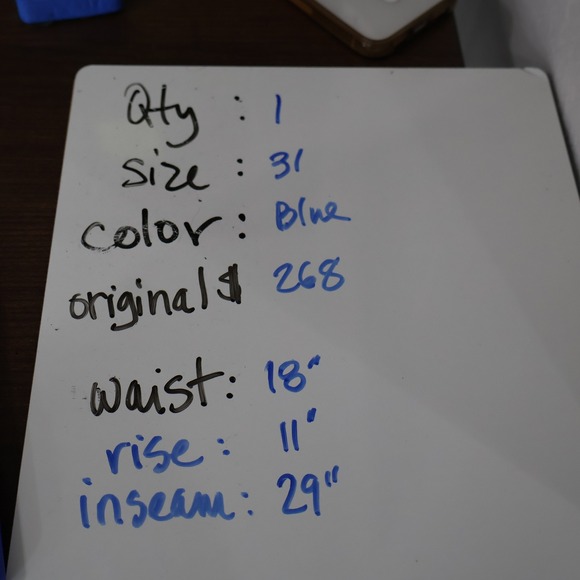 Qty : 1
size : 31
color : Blue
original $ 268
waist : 18"
rise : 11"
inseam : 29"